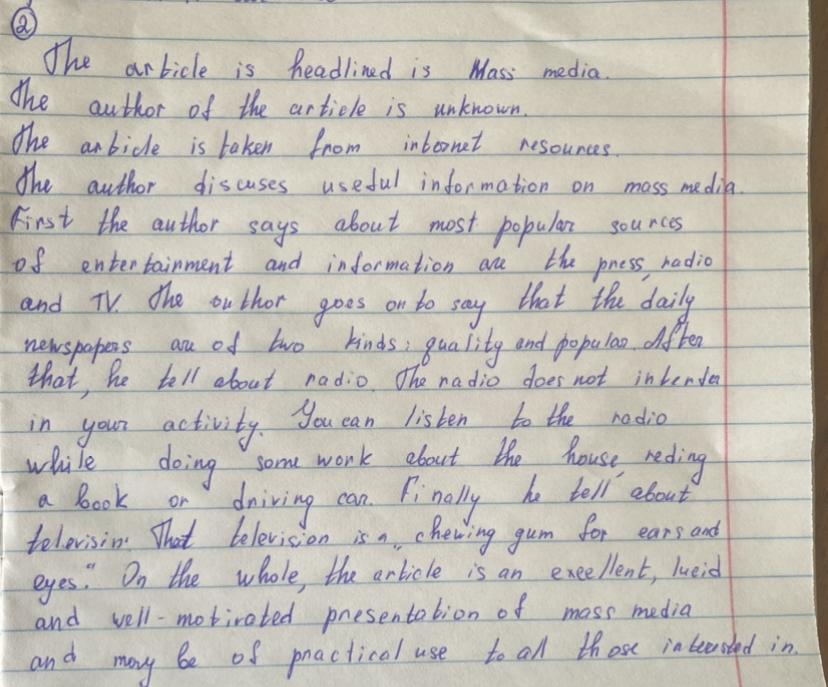 ②
The article is headlined is Mass media.
The author of the article is unknown.
The article is taken from internet resources.
The author discuses useful information on mass media.
First the author says about most popular sources
of entertainment and information are the press, radio
and TV. The outhor goes on to say that the daily
newspapers are of two kinds: quality and popular. After
that, he tell about radio. The radio does not intender
in your activity. You can listen to the radio
while doing some work about the house, reding
a book or driving car. Finally he tell about
televisin. That television is a „chewing gum for ears and
eyes." On the whole, the article is an excellent, lucid
and well-motivated presentation of mass media
and may be of practical use to all those interested in.